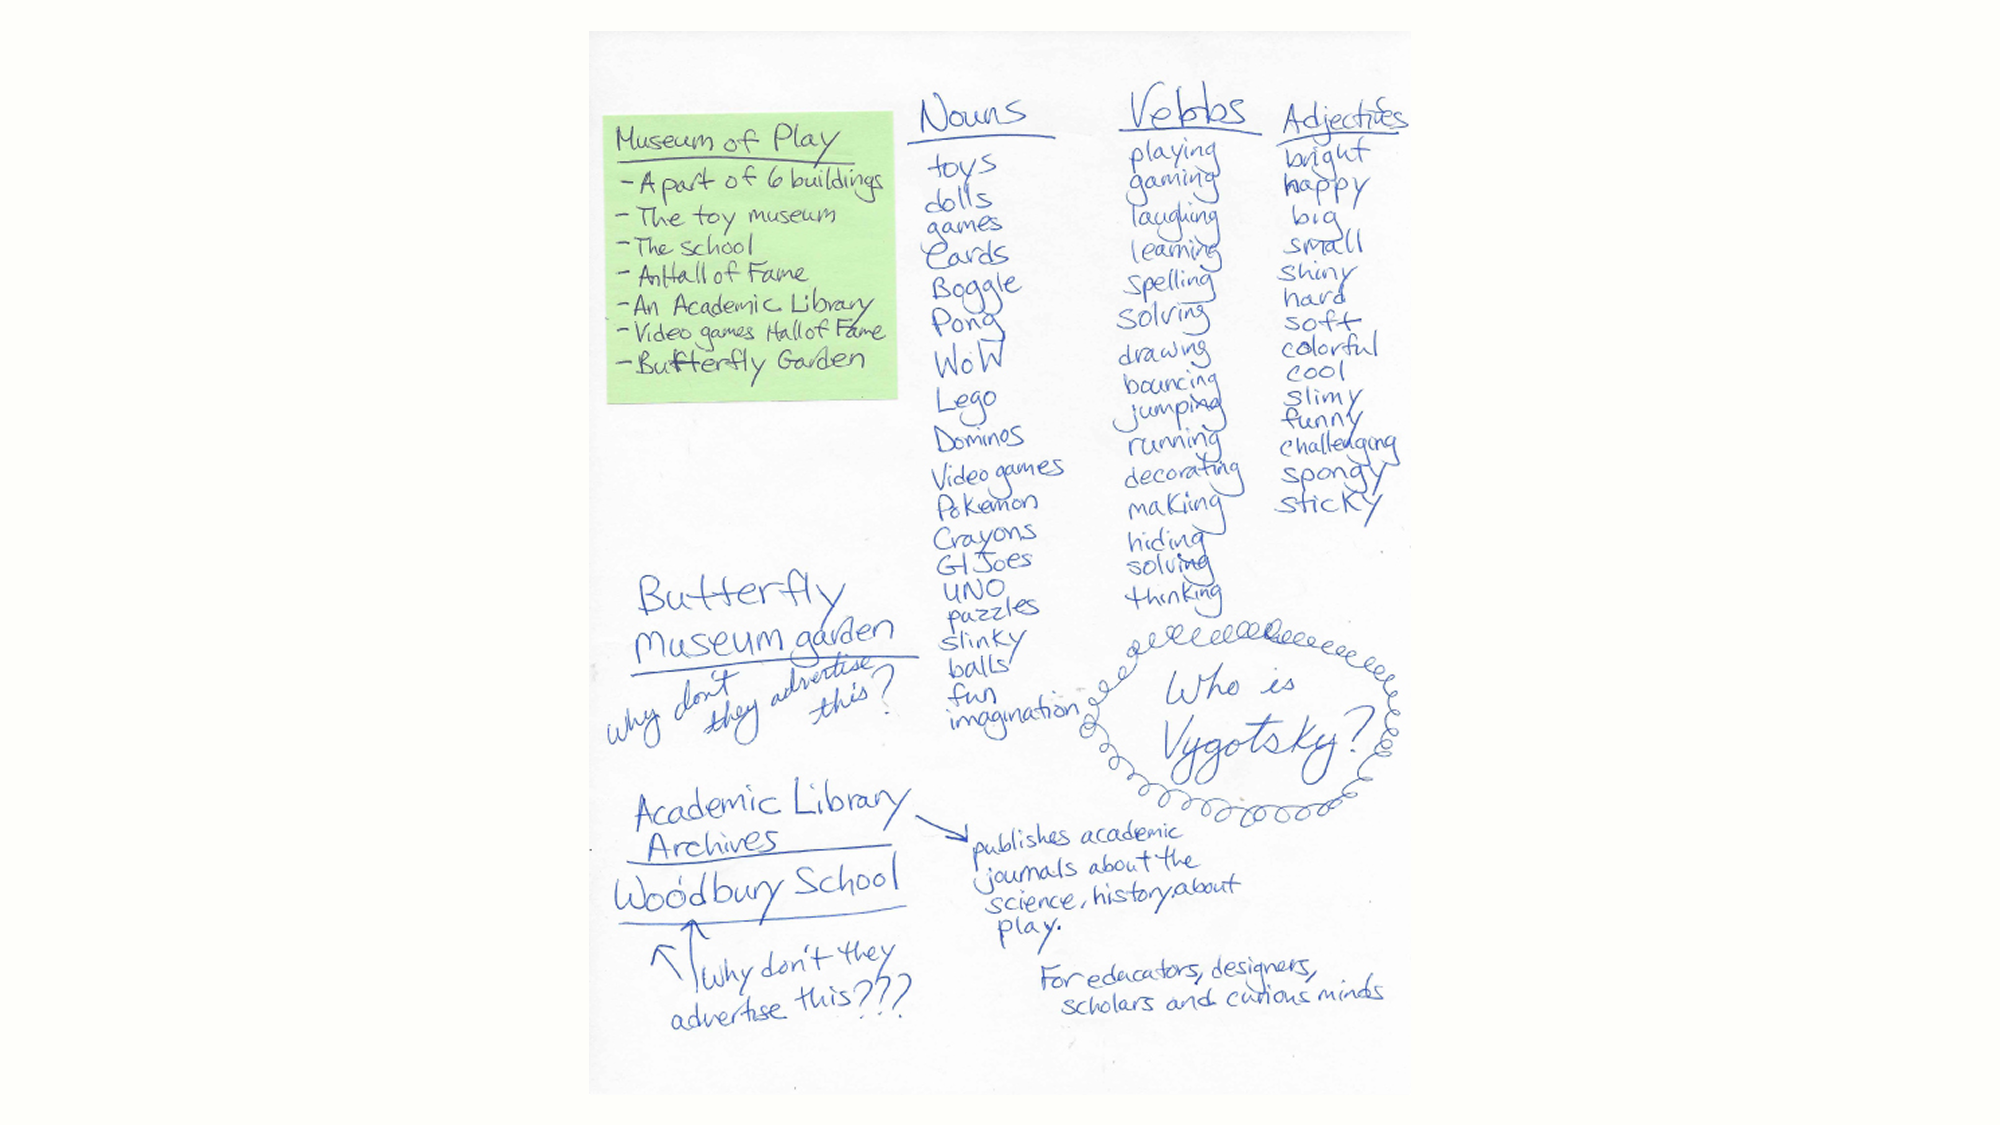 Museum of Play
- A part of 6 buildings
- The toy museum
- The school
- An Hall of Fame
- An Academic Library
- Video games Hall of Fame
- Butterfly Garden
Nouns
toys
dolls
games
Cards
Boggle
Pong
WoW
Lego
Dominos
Video games
Pokemon
Crayons
GI Joes
UNO
puzzles
slinky
balls
fun
imagination
Verbs
playing
gaming
laughing
learning
spelling
solving
drawing
bouncing
jumping
running
decorating
making
hiding
solving
thinking
Adjectives
bright
happy
big
small
shiny
hard
soft
colorful
cool
slimy
funny
challenging
spongy
sticky
Butterfly
Museum garden
why don't
they advertise
this?
Who is
Vygotsky?
Academic Library
Archives
publishes academic
journals about the
science, history about
play.
For educators, designers,
scholars and curious minds
Woodbury School
Why don't they
advertise this???